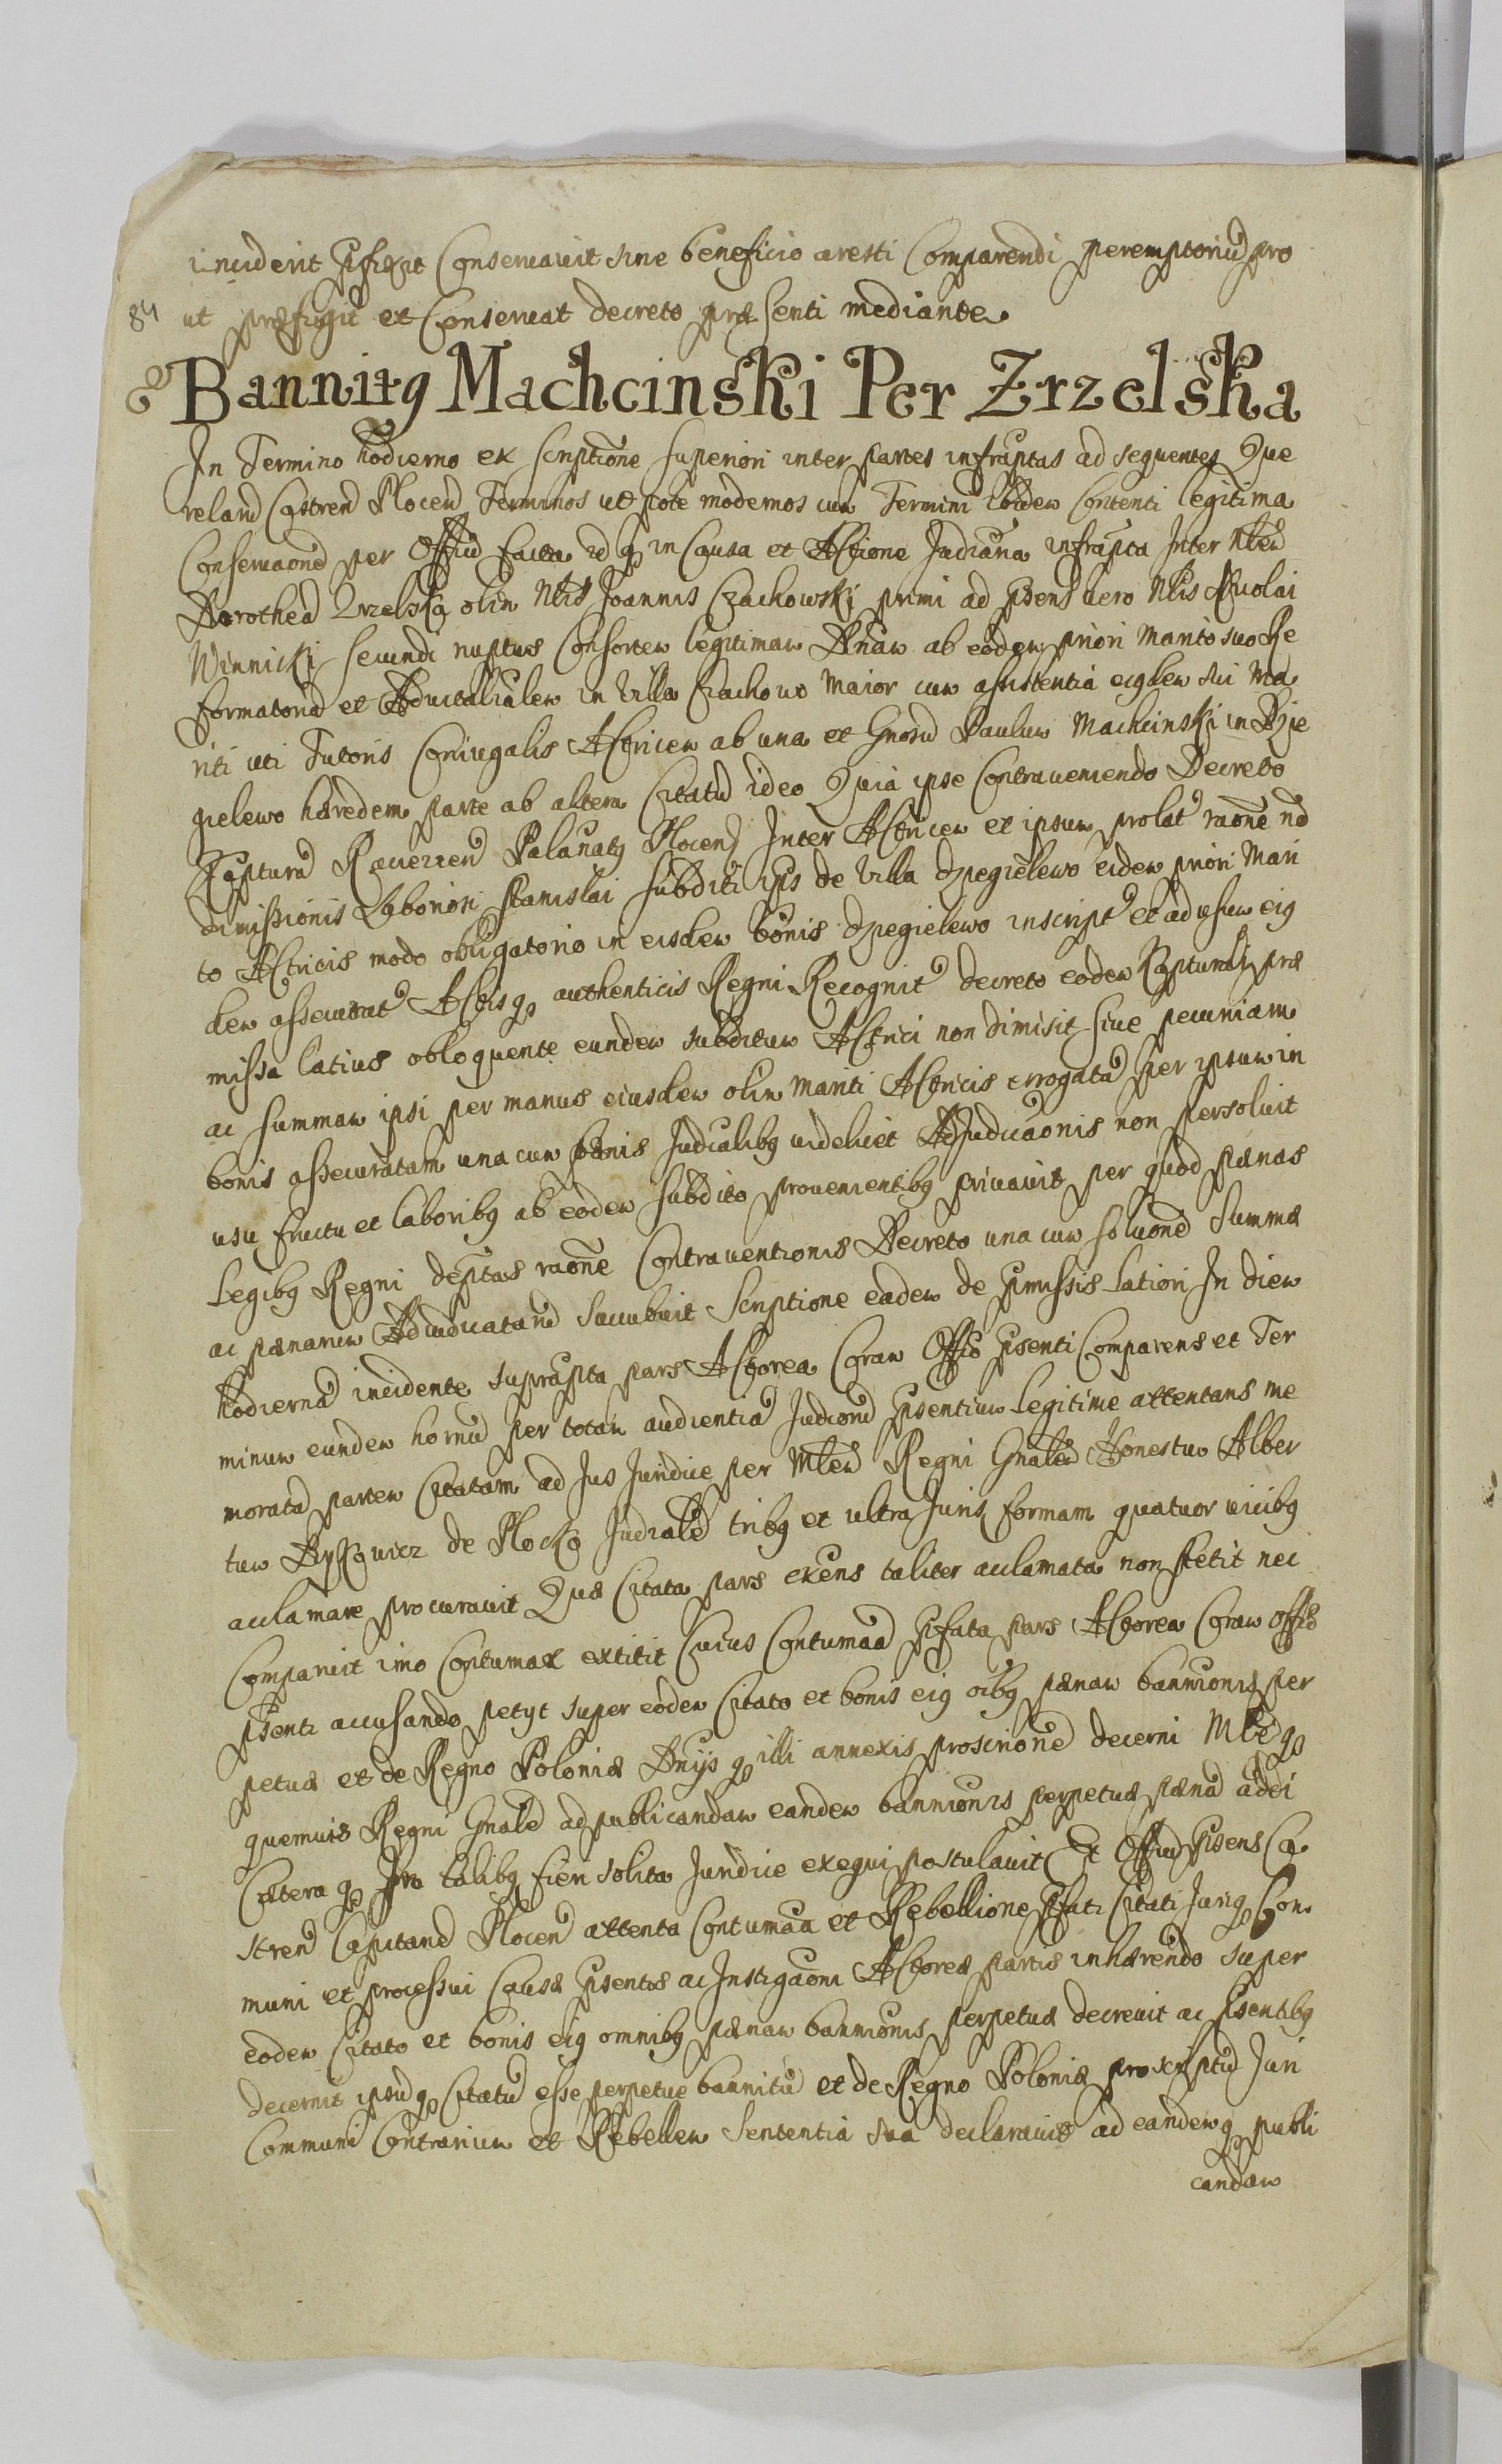 inciderit Pfixit Conservavit sine beneficio aresti Comparendi peremptoriu pro
84
ut præfigit et Conservat decreto præsenti mediante
Bannitq Machcinski Per Zrzelska
In Termino hodierno ex scriptione superiori inter partes infraptas ad sequentes Que
reland Castren Plocen Terminos ut pote modernos cum Termini ibidem Contenti legitima
Conservaone per Offiu facta id q in Causa et Actione Judiciaria infrapta Inter Nblem
Dorothea Zrzelska olim Nblis Joannis Czachowski primi ad Psens vero Nblis Nicolai
Winnicki secundi nuptus Consortem legitimam Dnam ab eodem priori Marito suo Re
formatoria et Advitalialem in Villa Czachowo Maior cum assistentia eiqdem sui Ma
riti uti Tutoris Coniugalis Actricem ab una et Gnosu Paulum Machcinski in Dzie
gielewo hæredem parte ab altera Citatu ideo Quia ipse Contraveniendo Decreto
Kapturu Palatinatq Plocen Inter Actricem et ipsum prolat raone no
dimissionis Laboriosi Stanislai subditi ipsi de Villa Dziegielewo eidem priori Mari
to Actricis modo obligatorio in eisdem bonis Dziegielewo inscript et ad usum eiq
dem assecurat Actis q authenticis Regni Recognit decreto eodem Kapturali præ
missa latius obloquente eundem subditum Actrici non dimisit sive pecuniam
ac summam ipsi per manus eiusdem olim Mariti Actricis erogata per ipsum in
bonis assecuratam una cum pænis Judicialibq videlicet Adjudicaonis non persolvit
usu fructu et laboribq ab eodem subdito provenientibq privavit per quod pænas
Legibq Regni deptas raone Contraventionis Decreto una cum solutione Summæ
ac pænarum Adiudicataru succubuit Scriptione eadem de Pmissis latiori In diem
hodierna incidente suprapta pars Actorea Coram Offio Psenti Comparens et Ter
minum eundem hornu per totam audientia Judicioru Psentium legitime attentans me
morata partem Citatam ad Jus Juridice per Mlem Regni Gnalem Honestum Alber
tum de Plocko Judiciale tribq et ultra Juris formam quatuor vicibq
acclamare procuravit Quæ Citata pars exens taliter acclamata non stetit nec
Comparuit imo Contumax extitit Cuius Contumacia Pfata pars Actorea Coram Offio
Psenti accusando petyt super eodem Citato et bonis eiq oibq pænam bannionis per
petuæ et de Regno Poloniæ Dnijs q illi annexis proscrione decerni Mle q
quemvis Regni Gnale ad publicandam eandem bannionis perpetuæ pæna addi
Cætera q pro talibq fieri solita Juridice exequi postulavit Et Offiu Psens Ca
stren Capitane Plocen attenta Contumacia et Rebellione Pfati Citati Juriq Com
muni et processui Causæ Psentis ac Instigaoni Actoreæ partis inhærendo super
eodem Citato et bonis eiq omnibq pænam bannionis perpetuæ decrevit ac Psentibq
decernit ipsu q Citatu esse perpetue bannitu et de Regno Poloniæ proscriptu Juri
Communi Contrarium et Rebellem Sententia sua declaravit ad eandem q publi
candam